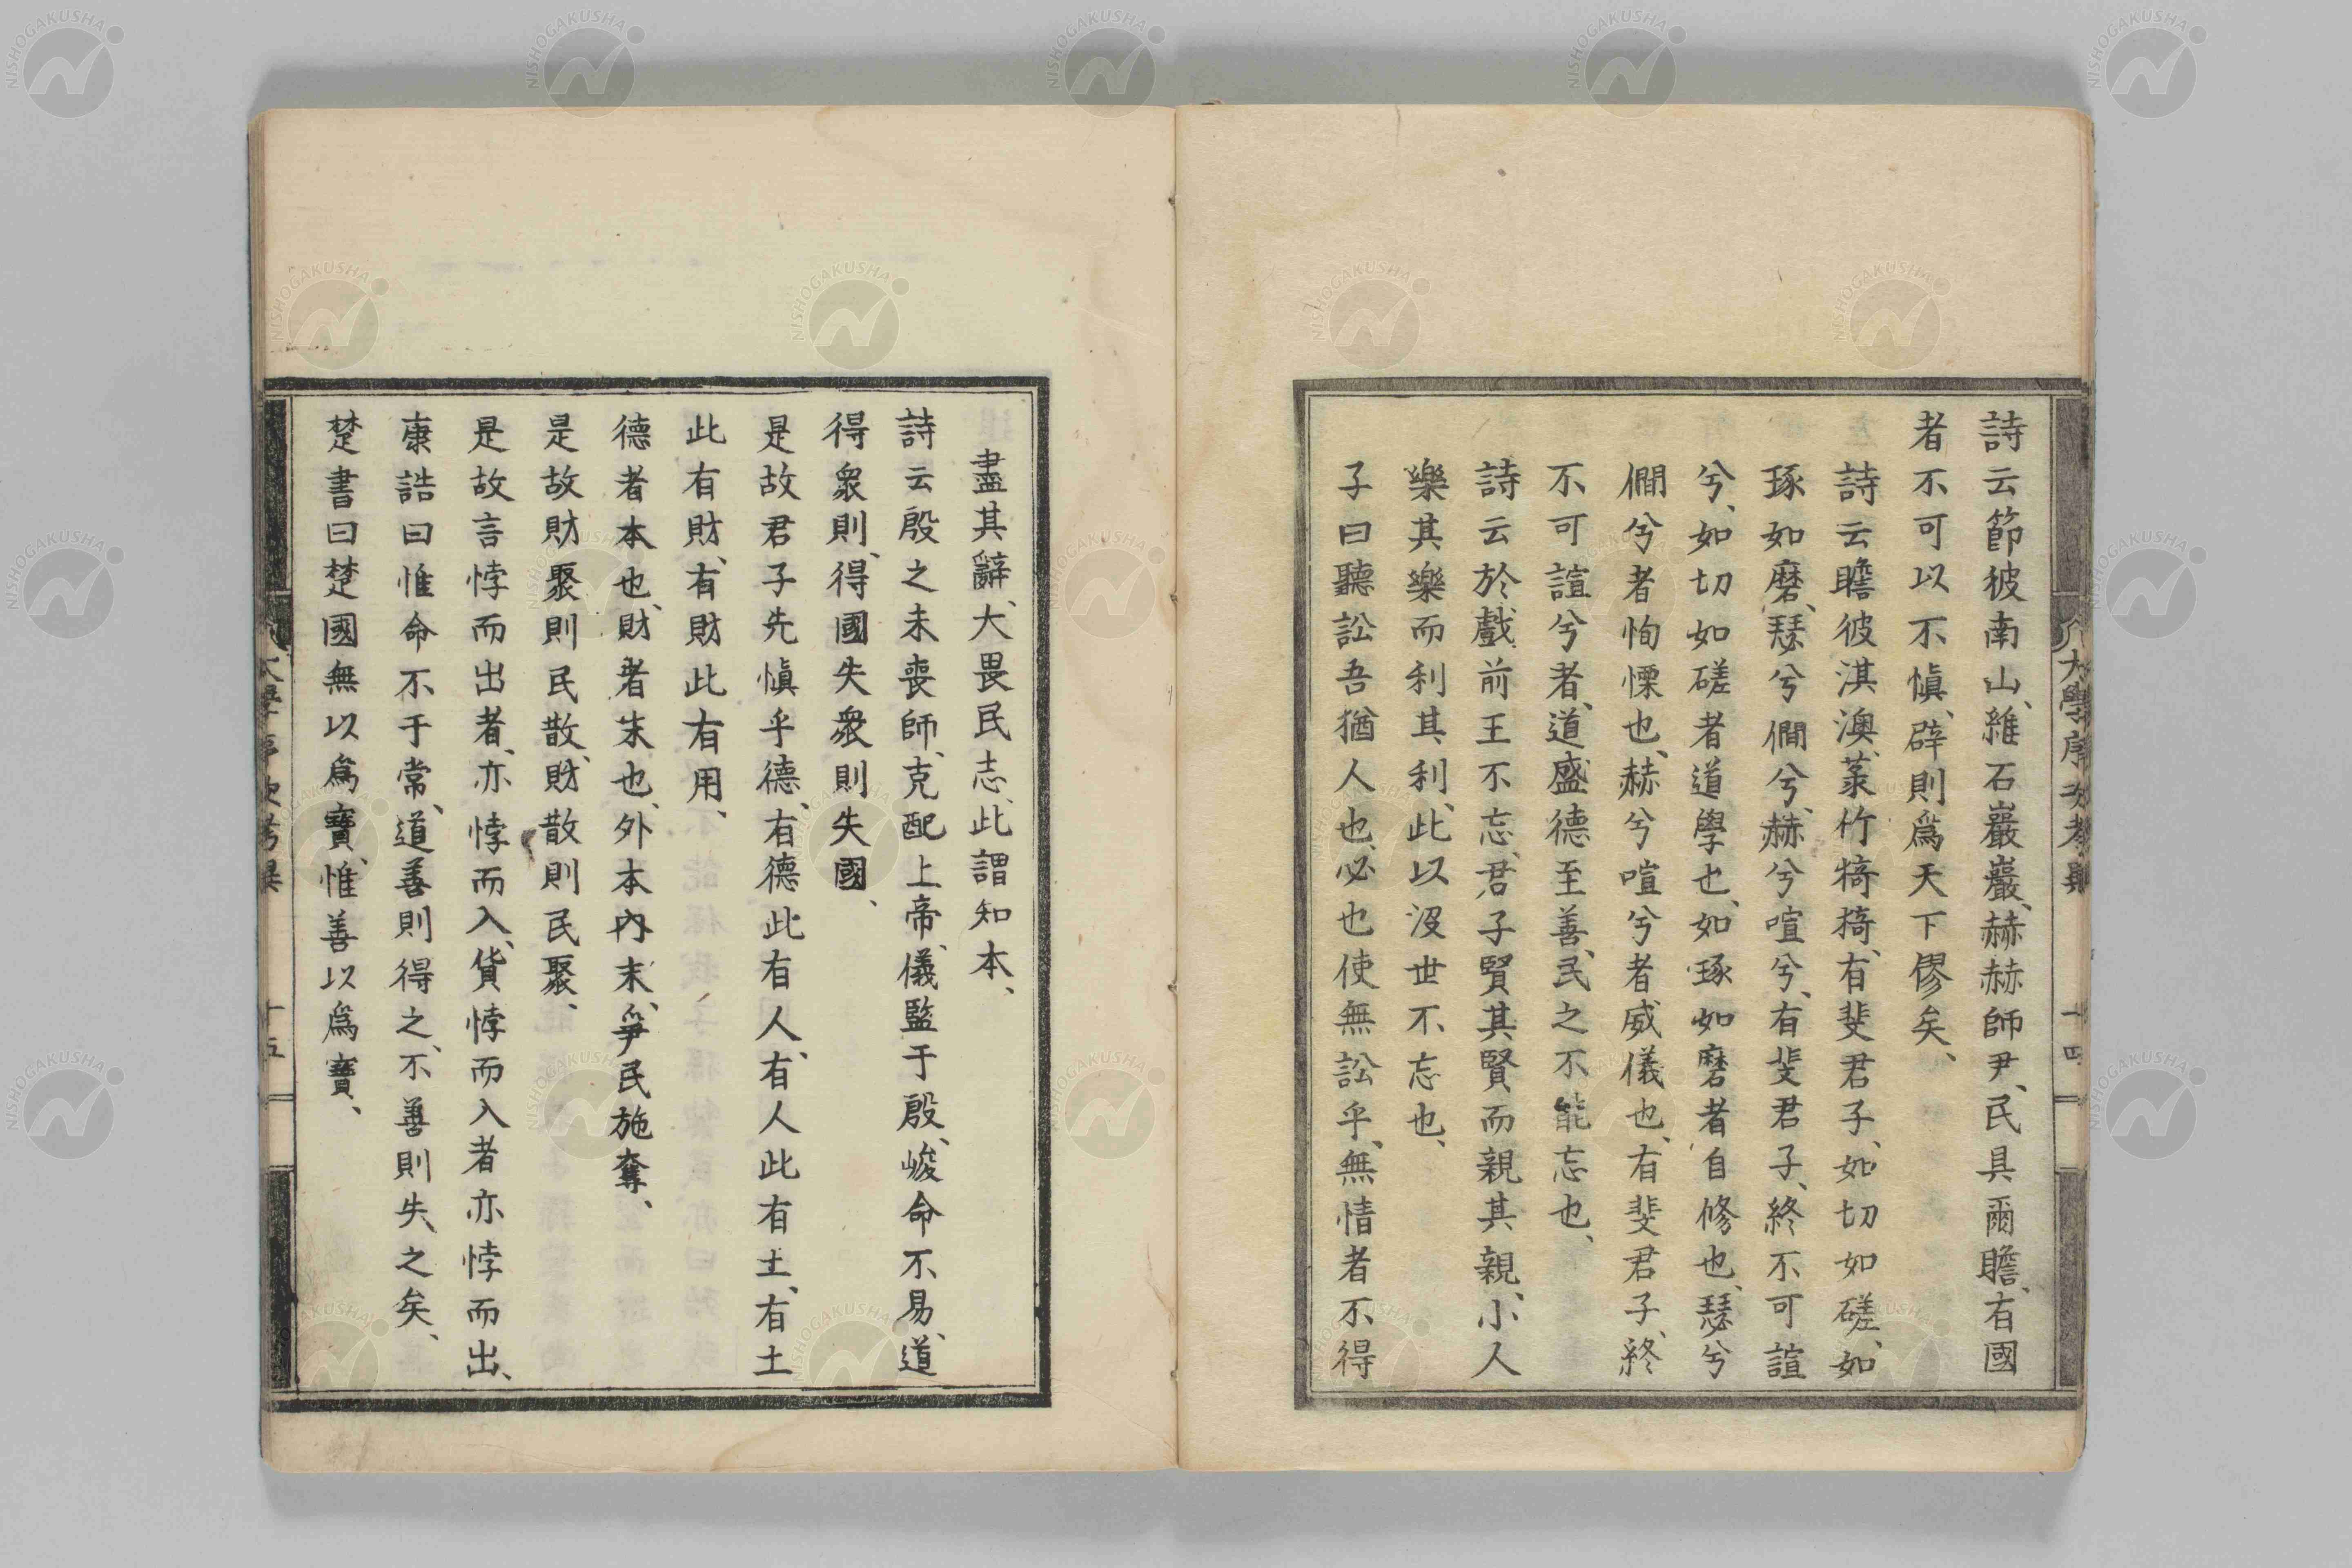 大學序次考異
十四
詩云節彼南山、維石巖巖、赫赫師尹、民具爾瞻、有國
者不可以不愼、辟則爲天下僇矣、
詩云瞻彼淇澳、菉竹猗猗、有斐君子、如切如磋、如
琢如磨、瑟兮僩兮、赫兮喧兮、有斐君子、終不可諠
兮、如切如磋者道學也、如琢如磨者自修也、瑟兮
僩兮者恂慄也、赫兮喧兮者威儀也、有斐君子、終
不可諠兮者、道盛德至善、民之不能忘也、
詩云於戲前王不忘、君子賢其賢而親其親、小人
樂其樂而利其利、此以沒世不忘也、
子曰聽訟吾猶人也、必也使無訟乎、無情者不得
盡其辭、大畏民志、此謂知本、
詩云殷之未喪師、克配上帝、儀監于殷、峻命不易、道
得衆則、得國失衆則失國、
是故君子先愼乎德、有德此有人、有人此有土、有土
此有財、有財此有用、
德者本也、財者末也、外本內末、爭民施奪、
是故財聚則民散、財散則民聚、
是故言悖而出者、亦悖而入、貨悖而入者亦悖而出、
康誥曰惟命不于常、道善則得之、不善則失之矣、
楚書曰楚國無以爲寶、惟善以爲寶、
大學序次考異
十五
NISHOGAKUSHA